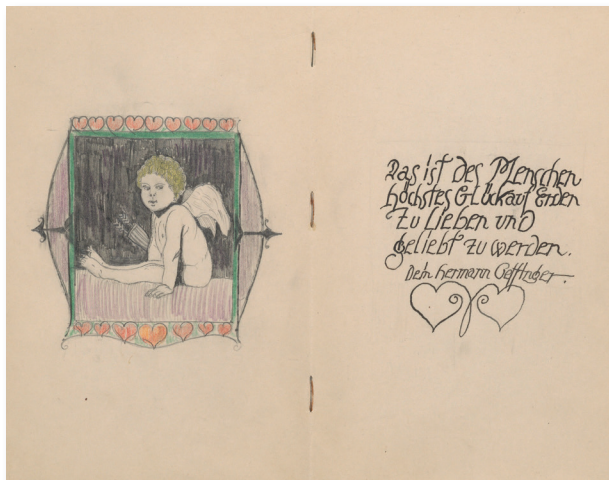 Das ist des Menschen
höchstes Glück auf Erden
Zu Lieben und
geliebt zu werden.
Dein Hermann